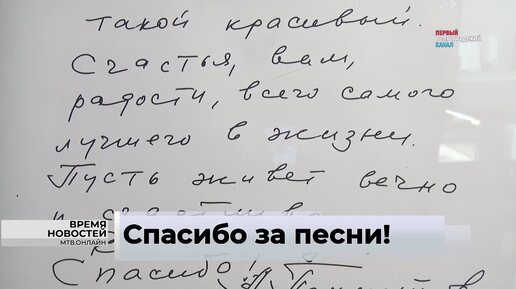 такой красивый.
ПЕРВЫЙ
КАНАЛ
Счастья, вам,
радости, всего самого
лучшего в жизни.
Пусть живет вечно
и
ВРЕМЯ
НОВОСТЕЙ
МТВ.ОНЛАЙН
Спасибо за песни!
Спасибо!